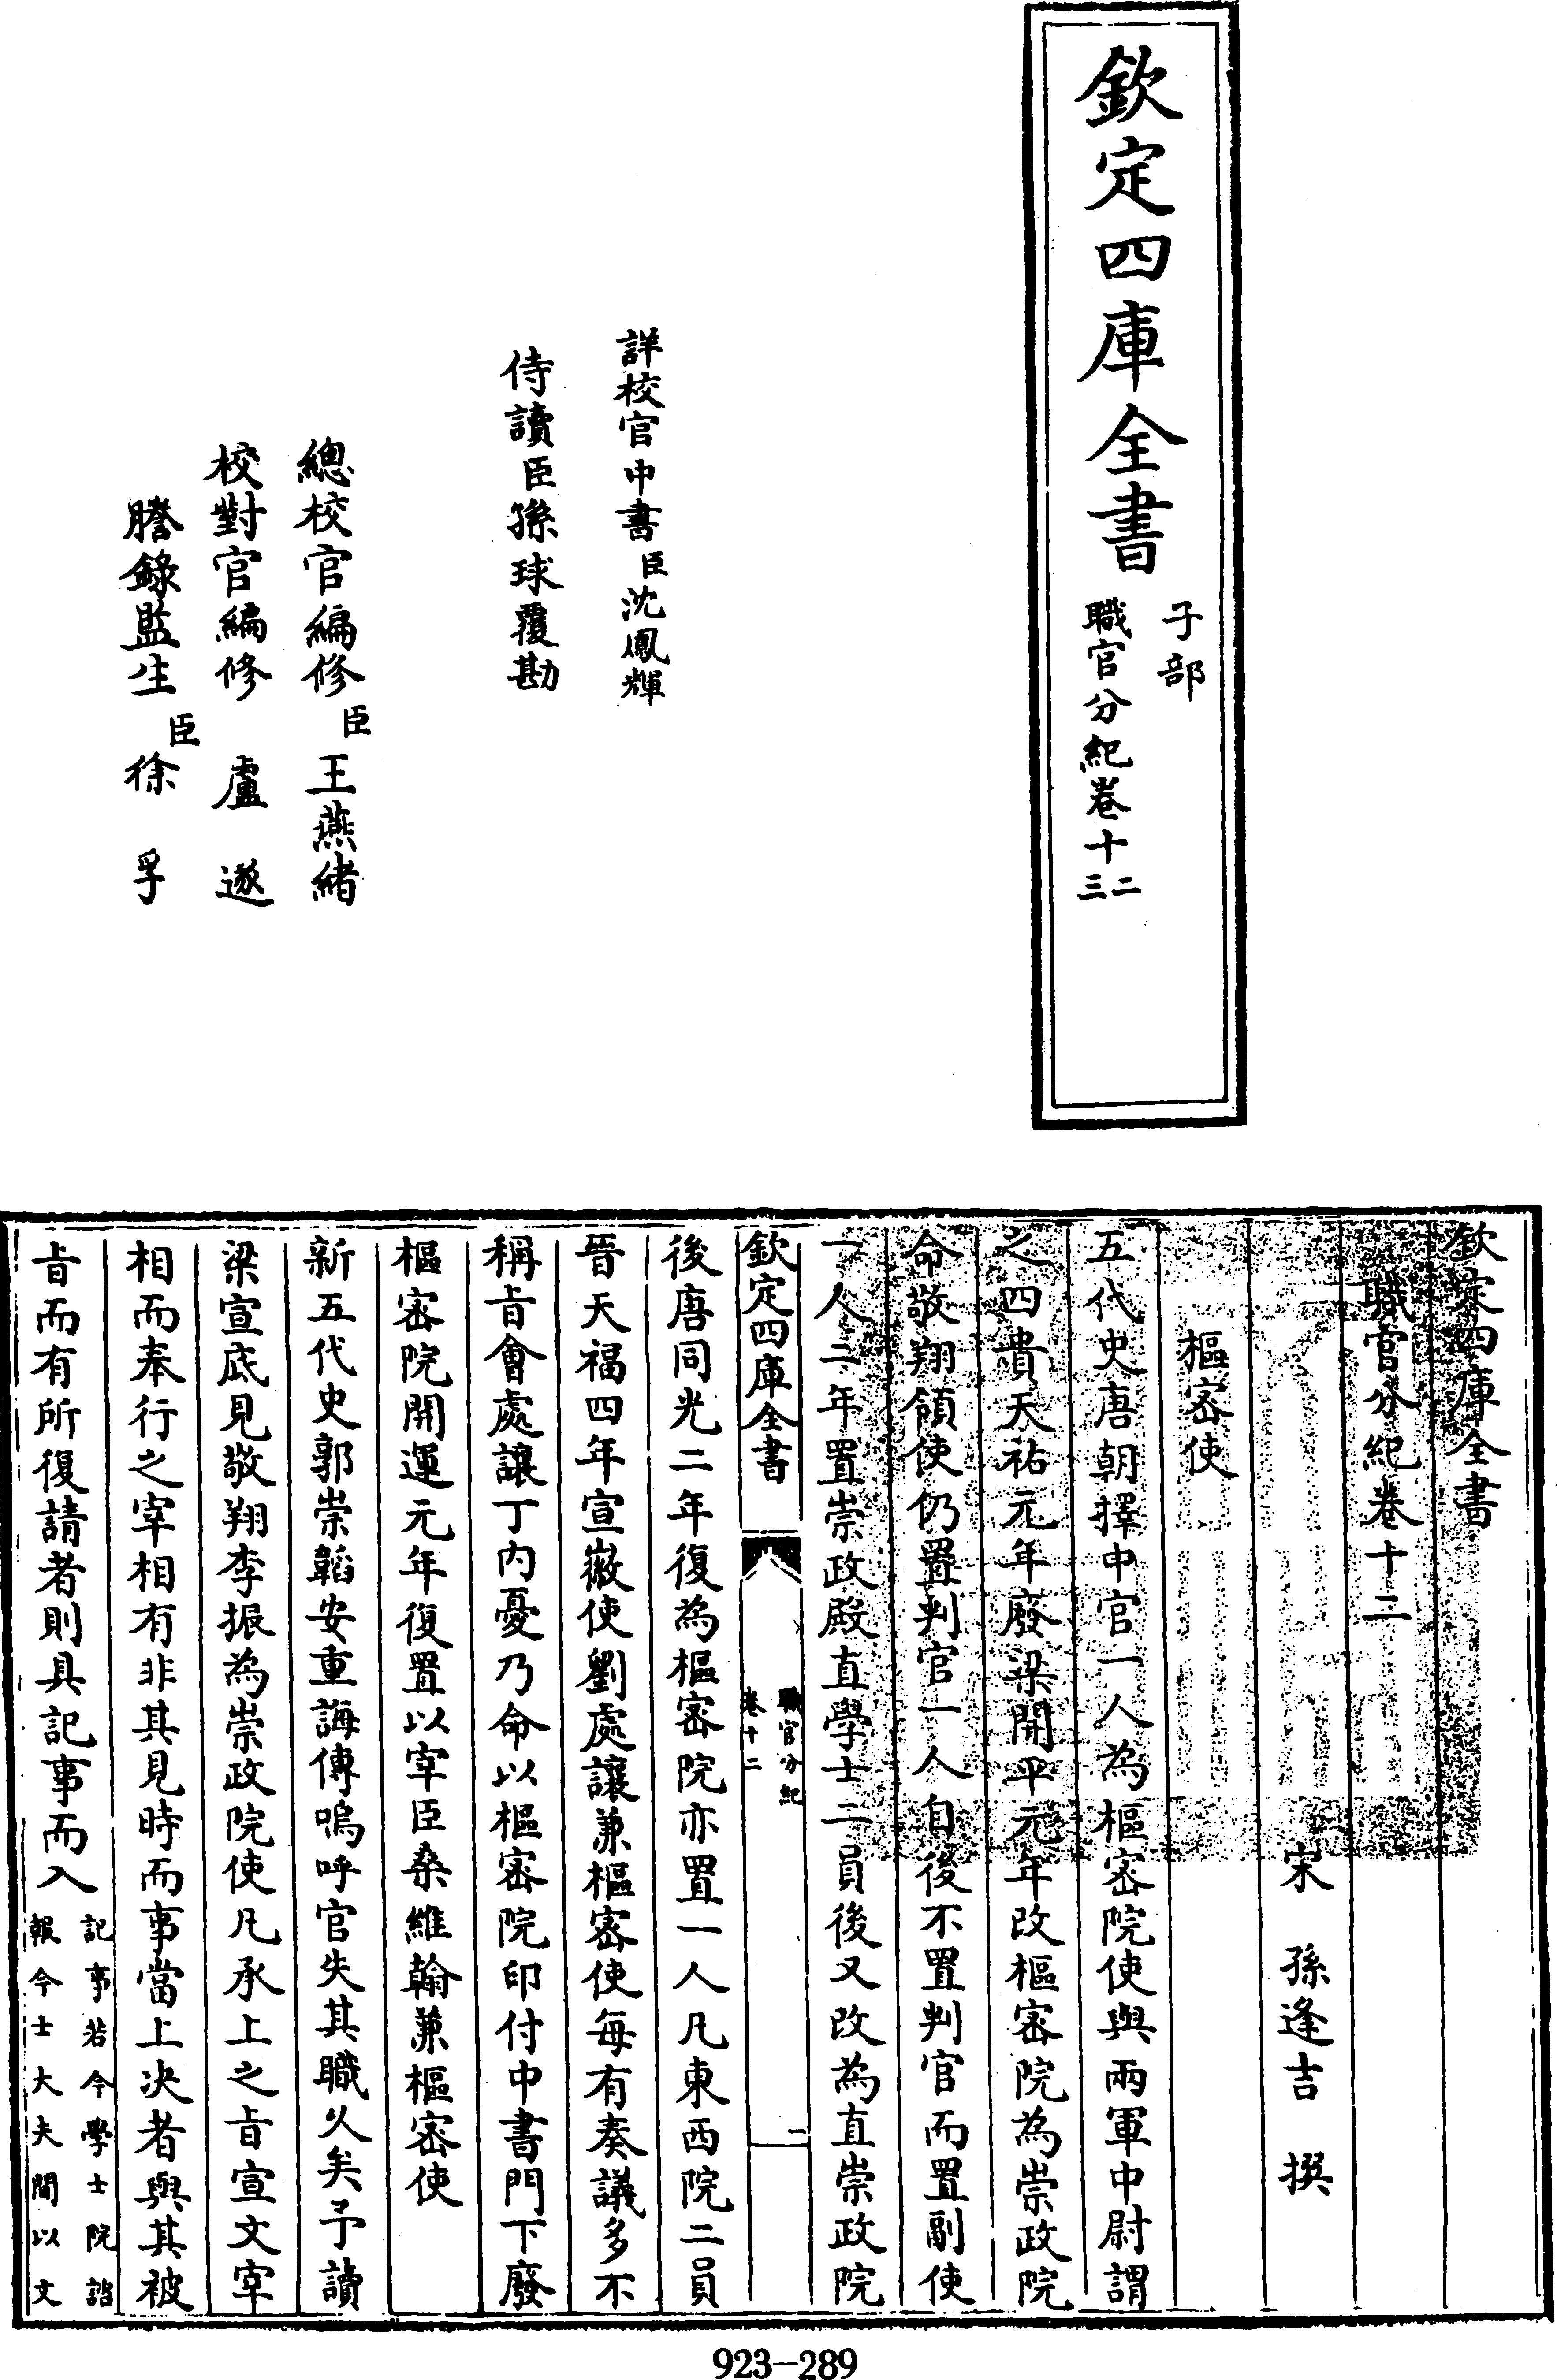 欽定四庫全書
子部
職官分紀卷十二
三
詳校官中書臣沈鳳輝
侍讀臣孫球覆勘
總校官編修臣王燕緒
校對官編修盧遂
謄錄監生臣徐孚
欽定四庫全書
職官分紀卷十二
宋 孫逢吉 撰
樞密使
五代史唐朝擇中官一人為樞密院使與兩軍中尉謂
之四貴天祐元年廢梁開平元年改樞密院為崇政院
命敬翔領使仍置判官一人自後不置判官而置副使
一人二年置崇政殿直學士二員後又改為直崇政院
欽定四庫全書
職官分紀
卷十二
一
後唐同光二年復為樞密院亦置一人凡東西院二員
晉天福四年宣徽使劉處讓兼樞密使每有奏議多不
稱旨會處讓丁內憂乃命以樞密院印付中書門下廢
樞密院開運元年復置以宰臣桑維翰兼樞密使
新五代史郭崇韜安重誨傳嗚呼官失其職久矣予讀
梁宣底見敬翔李振為崇政院使凡承上之旨宣文宰
相而奉行之宰相有非其見時而事當上决者與其被
旨而有所復請者則具記事而入
記事若今學士院諮
報今士大夫間以文
923-289